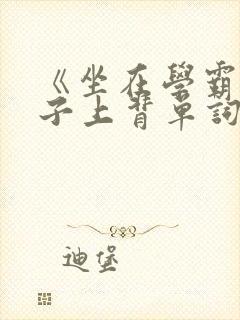 《坐在學霸
子上背單詞
迪堡